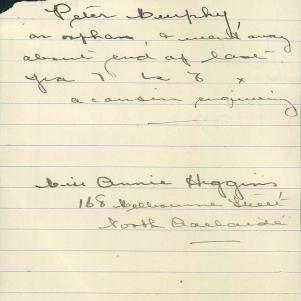 Peter Murphy
an orphan, & went away
about end of last
year 7 to 8 x
a cousin enquiring
Miss Annie Higgins
168 Melbourne Street
North Adelaide